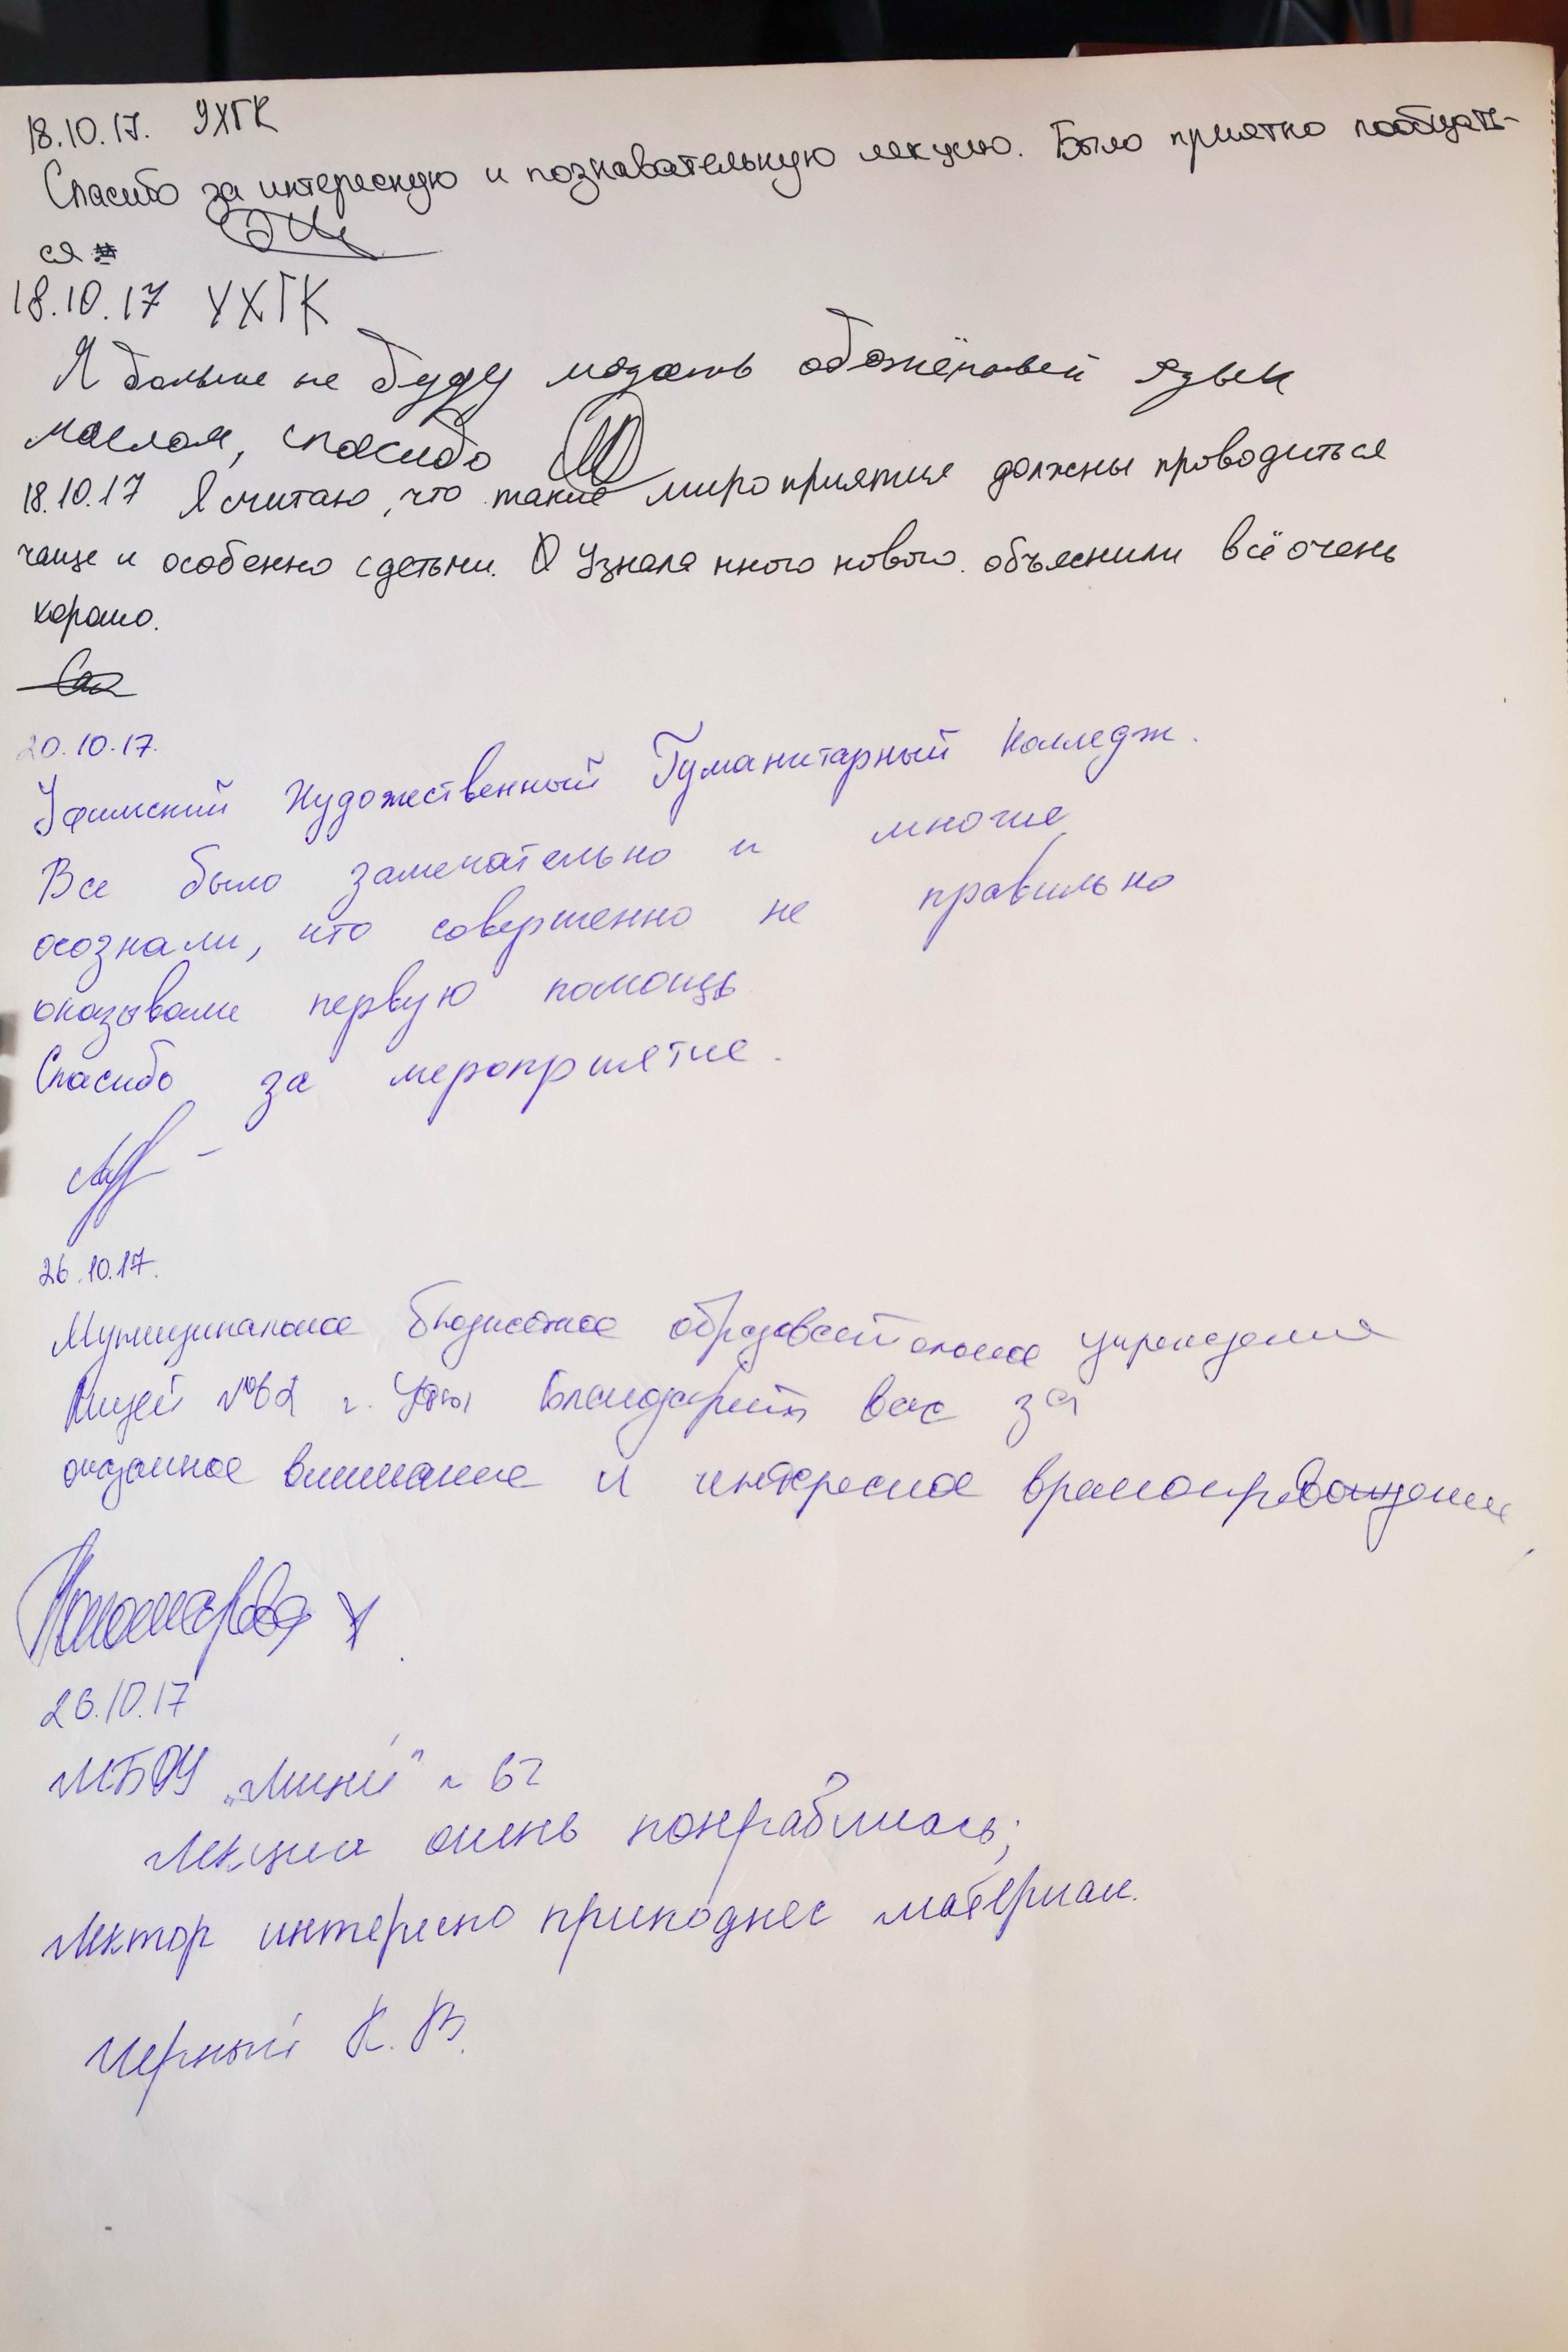 18.10.17. УХГК
Спасибо за интересную и познавательную лекцию. Было приятно пообщать-
ся
18.10.17 УХГК
Я больше не буду мазать обожённый язык
маслом, спасибо
18.10.17 Я считаю, что такие мироприятия должны проводиться
чаще и особенно с детьми. Узнала много нового. объяснили всё очень
хорошо.
20.10.17.
Уфимский Художественный Гуманитарный Колледж.
Все было замечательно и многие
осознали, что совершенно не правильно
оказывали первую помощь
Спасибо за мероприятие.
26.10.17.
Муниципальное бюджетное образовательное учреждение
Лицей №62 г. Уфы Благодарит вас за
оказанное внимание и интересное
Пономарева
26.10.17
МБОУ „Лицей" № 62
Лекция очень понравилась;
Лектор интересно приподнес материал.
Черный К. В.